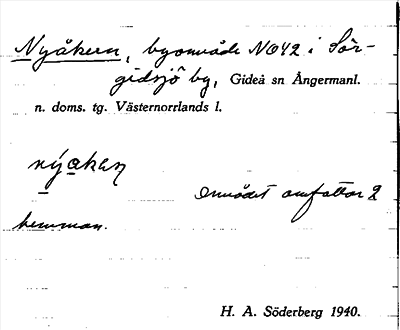 Nyåkern, byområde NO42 i Sör-
gidsjö by, Gideå sn Ångermanl.
n. doms. tg. Västernorrlands l.
nýakeṇ
Området omfattar 2
hemman.
H. A. Söderberg 1940.